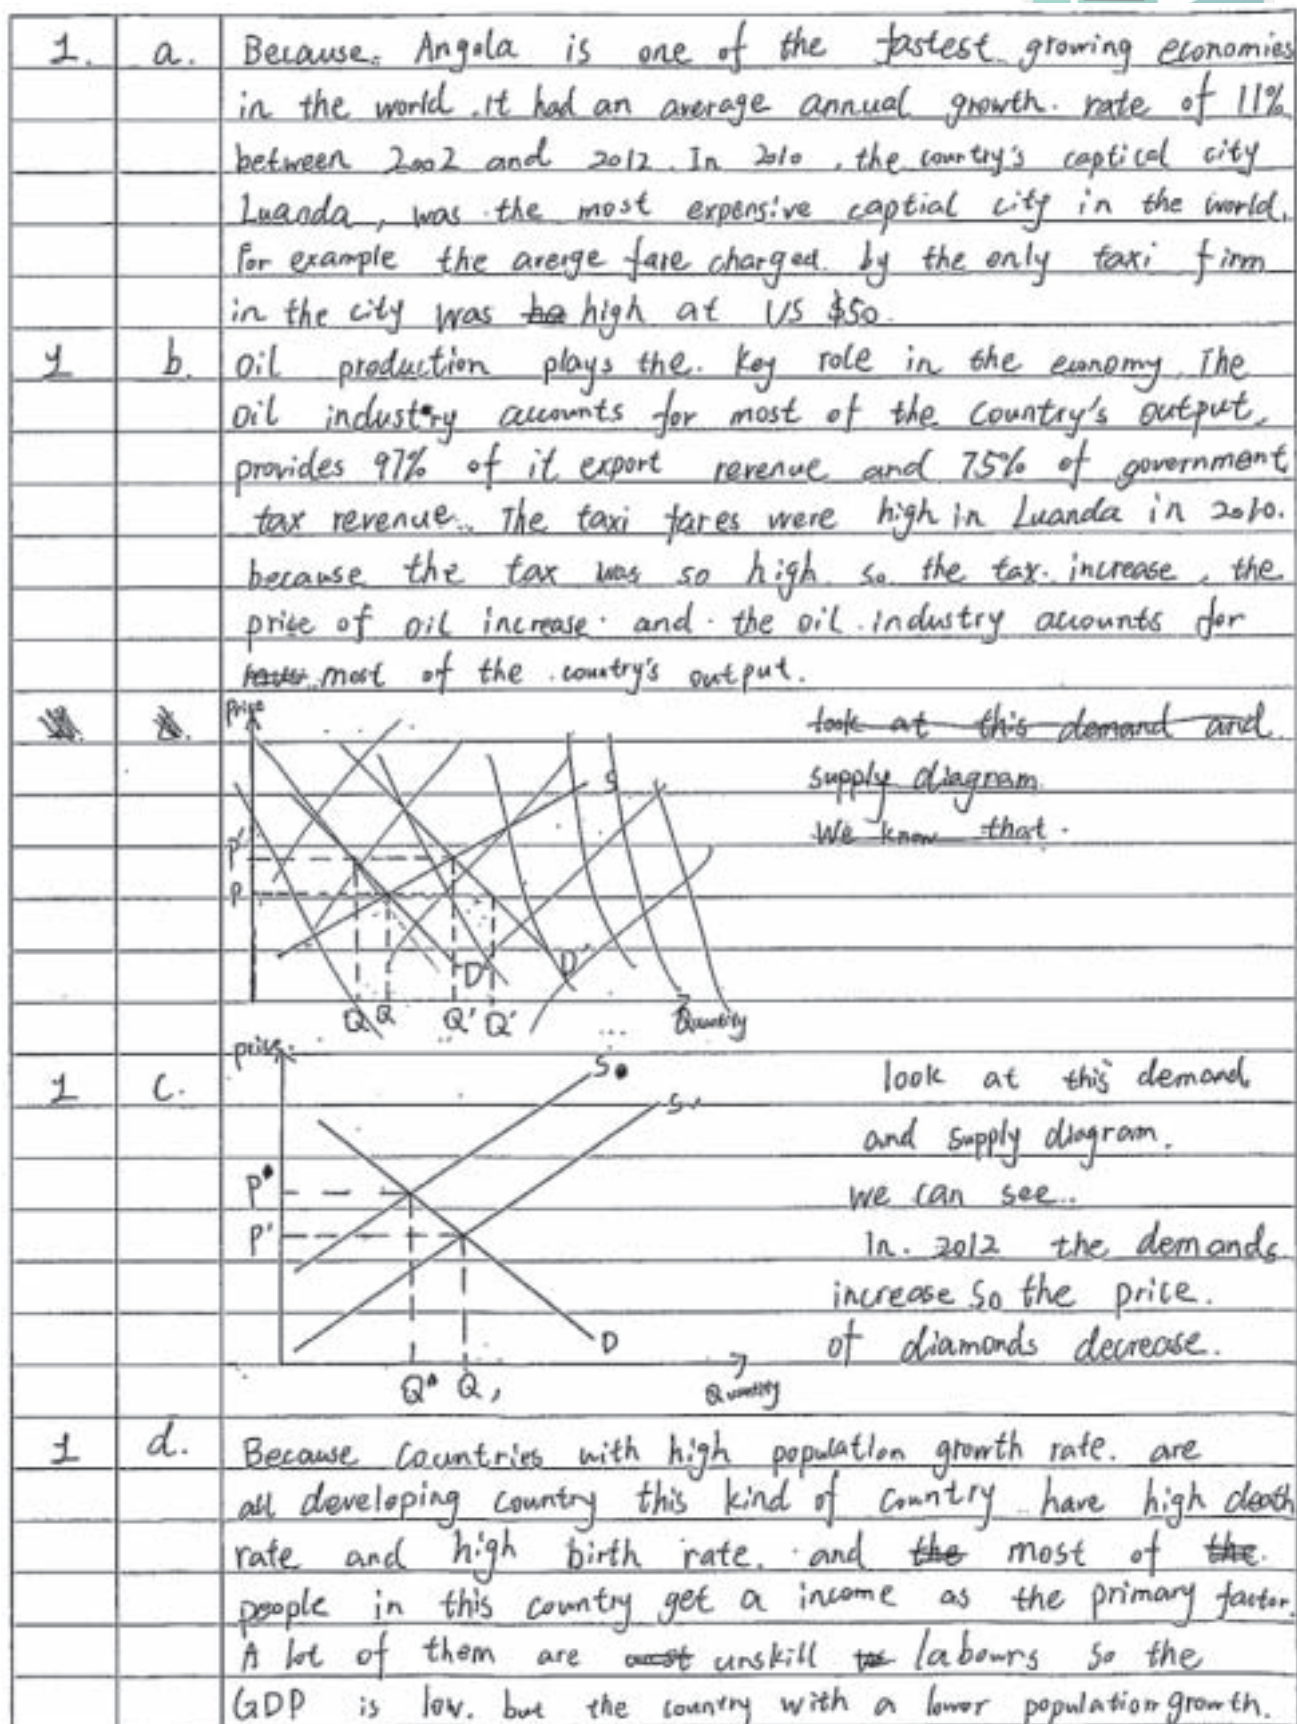 1. a. Because. Angola is one of the fastest growing economies
in the world. it had an average annual growth. rate of 11%
between 2002 and 2012. In 2010, the country's captical city
Luanda, was the most expensive captial city in the world.
For example the averge fare charged. by the only taxi firm
in the city was high at US $50.
1 b. Oil production plays the. key role in the economy. The
oil industry accounts for most of the country's output.
provides 97% of it export revenue and 75% of government
tax revenue. The taxi fares were high in Luanda in 2010.
because the tax was so high so the tax. increase, the
price of oil increase. and the oil industry accounts for
most of the country's output.
price
look at this demand and
supply diagram
We know that.
S
P'
P
D
D'
Q Q Q' Q' Quantity
price
1 c. look at this demand
and supply diagram.
we can see..
In. 2012 the demands
increase so the price.
of diamonds decrease.
S
S,
P
P'
D
Q Q, Quantity
1 d. Because countries with high population growth rate. are
all developing country this kind of country have high death
rate and high birth rate. and the most of the
people in this country get a income as the primary factor.
A lot of them are unskill labours so the
GDP is low. but the country with a lower population growth.